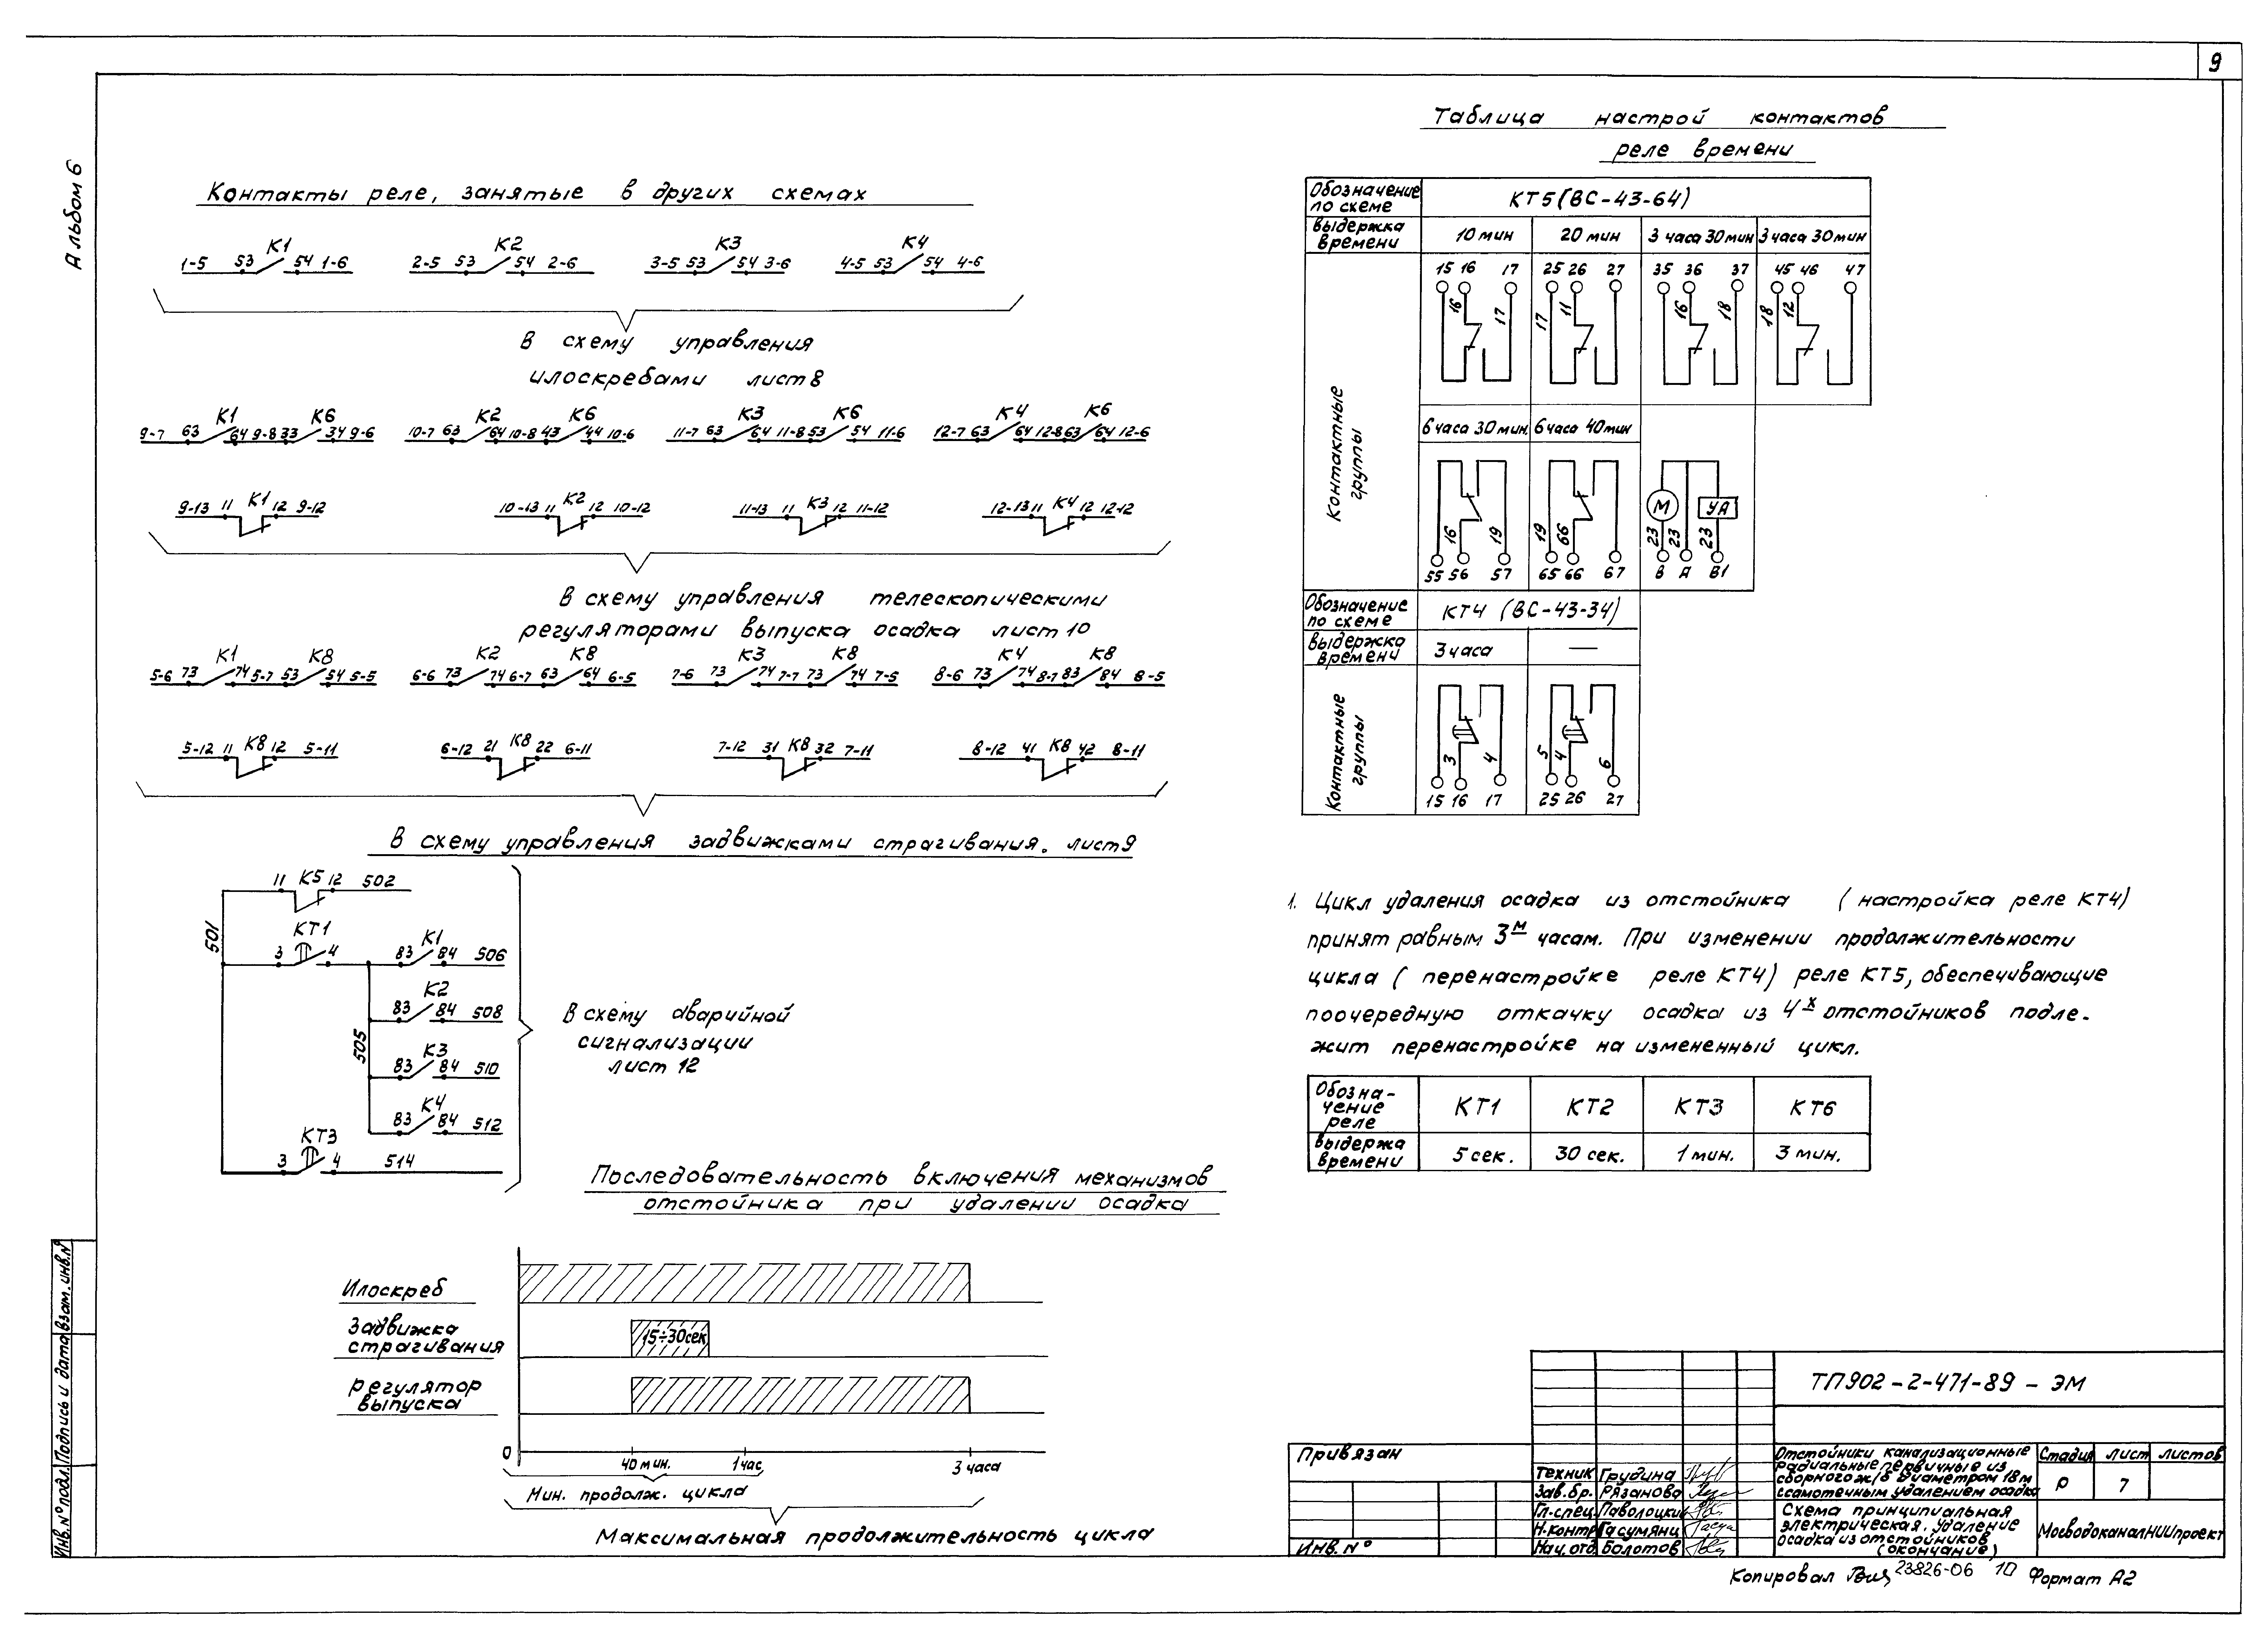 9
Альбом 6
Контакты реле, занятые в других схемах
К1 К2 К3 К4
1-5 53 54 1-6 2-5 53 54 2-6 3-5 53 54 3-6 4-5 53 54 4-6
В схему управления
илоскребами лист 8
К1 К6 К2 К6 К3 К6 К4 К6
9-7 63 64 9-8 33 34 9-6 10-7 63 64 10-8 43 44 10-6 11-7 63 64 11-8 53 54 11-6 12-7 63 64 12-8 63 64 12-6
9-13 11 К1 12 9-12 10-13 11 К2 12 10-12 11-13 11 К3 12 11-12 12-13 11 К4 12 12-12
В схему управления телескопическими
регуляторами выпуска осадка лист 10
К1 К8 К2 К8 К3 К8 К4 К8
5-6 73 74 5-7 53 54 5-5 6-6 73 74 6-7 63 64 6-5 7-6 73 74 7-7 73 74 7-5 8-6 73 74 8-7 83 84 8-5
5-12 11 К8 12 5-11 6-12 21 К8 22 6-11 7-12 31 К8 32 7-11 8-12 41 К8 42 8-11
В схему управления задвижками страгивания. лист 9
11 К5 12 502
501
КТ1 К1
3 4 83 84 506
К2
83 84 508
505
К3
83 84 510
К4
83 84 512
КТ3
3 4 514
В схему аварийной
сигнализации
лист 12
Последовательность включения механизмов
отстойника при удалении осадка
Илоскреб
Задвижка
страгивания
15÷30сек
регулятор
выпуска
0 40 мин. 1 час 3 часа
Мин. продолж. цикла
Максимальная продолжительность цикла
Таблица настрой контактов
реле времени
Обозначение
по схеме
КТ5(ВС-43-64)
выдержка
времени
10 мин 20 мин 3 часа 30мин 3 часа 30мин
Контактные
группы
15 16 17 25 26 27 35 36 37 45 46 47
16 17 17 11 16 18 18 12
6 часа 30 мин. 6 часа 40 мин
М УА
16 19 19 66 23 23 23
55 56 57 65 66 67 В А В1
Обозначение
по схеме
КТ4 (ВС-43-34)
выдержка
времени
3 часа —
Контактные
группы
3 4 5 4 6
15 16 17 25 26 27
1. Цикл удаления осадка из отстойника (настройка реле КТ4)
принят равным 3м часам. При изменении продолжительности
цикла ( перенастройке реле КТ4) реле КТ5, обеспечивающие
поочередную откачку осадка из 4х отстойников подле-
жит перенастройке на измененный цикл.
Обозна-
чение
реле
КТ1 КТ2 КТ3 КТ6
выдержа
времени
5 сек. 30 сек. 1 мин. 3 мин.
Инв.№ подл. Подпись и дата Взам. инв.№
Привязан
Инв.№
Техник Грудина
Зав.бр. Рязанова
Гл.спец. Паволоцкий
Н.контр Гасумянц
Нач.отд. Болотов
ТП902-2-471-89 - ЭМ
Отстойники канализационные
радиальные первичные из
сборного ж/б диаметром 18м
с самотечным удалением осадка
Стадия лист листов
Р 7
Схема принципиальная
электрическая. Удаление
осадка из отстойников
(окончание)
МосводоканалНИИпроект
Копировал 23826-06 10 Формат А2